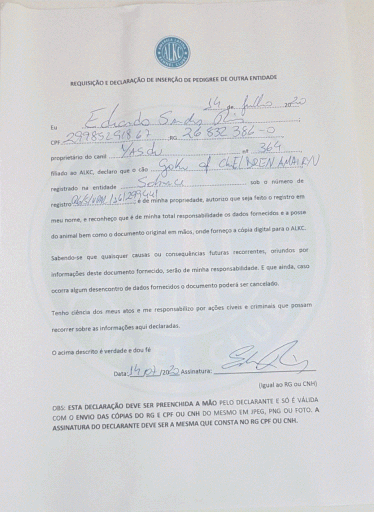 ALKC
REQUISIÇÃO E DECLARAÇÃO DE INSERÇÃO DE PEDIGREE DE OUTRA ENTIDADE
14 de Julho 2020
Eu Eduardo
CPF 29985291867 RG 26 832 386-0
proprietário do canil YASDU nº 364
filiado ao ALKC, declaro que o cão of
registrado na entidade Sobraci sob o número de
registro é de minha propriedade, autorizo que seja feito o registro em
meu nome, e reconheço que é de minha total responsabilidade os dados fornecidos e a posse
do animal bem como o documento original em mãos, onde forneço a cópia digital para o ALKC.
Sabendo-se que quaisquer causas ou consequências futuras recorrentes, oriundos por
informações deste documento fornecido, serão de minha responsabilidade. E que ainda, caso
ocorra algum desencontro de dados fornecidos o documento poderá ser cancelado.
Tenho ciência dos meus atos e me responsabilizo por ações cíveis e criminais que possam
recorrer sobre as informações aqui declaradas.
O acima descrito é verdade e dou fé
Data: Assinatura:
(igual ao RG ou CNH)
OBS: ESTA DECLARAÇÃO DEVE SER PREENCHIDA A MÃO PELO DECLARANTE E SÓ É VÁLIDA
COM O ENVIO DAS CÓPIAS DO RG E CPF OU CNH DO MESMO EM JPEG, PNG OU FOTO. A
ASSINATURA DO DECLARANTE DEVE SER A MESMA QUE CONSTA NO RG CPF OU CNH.